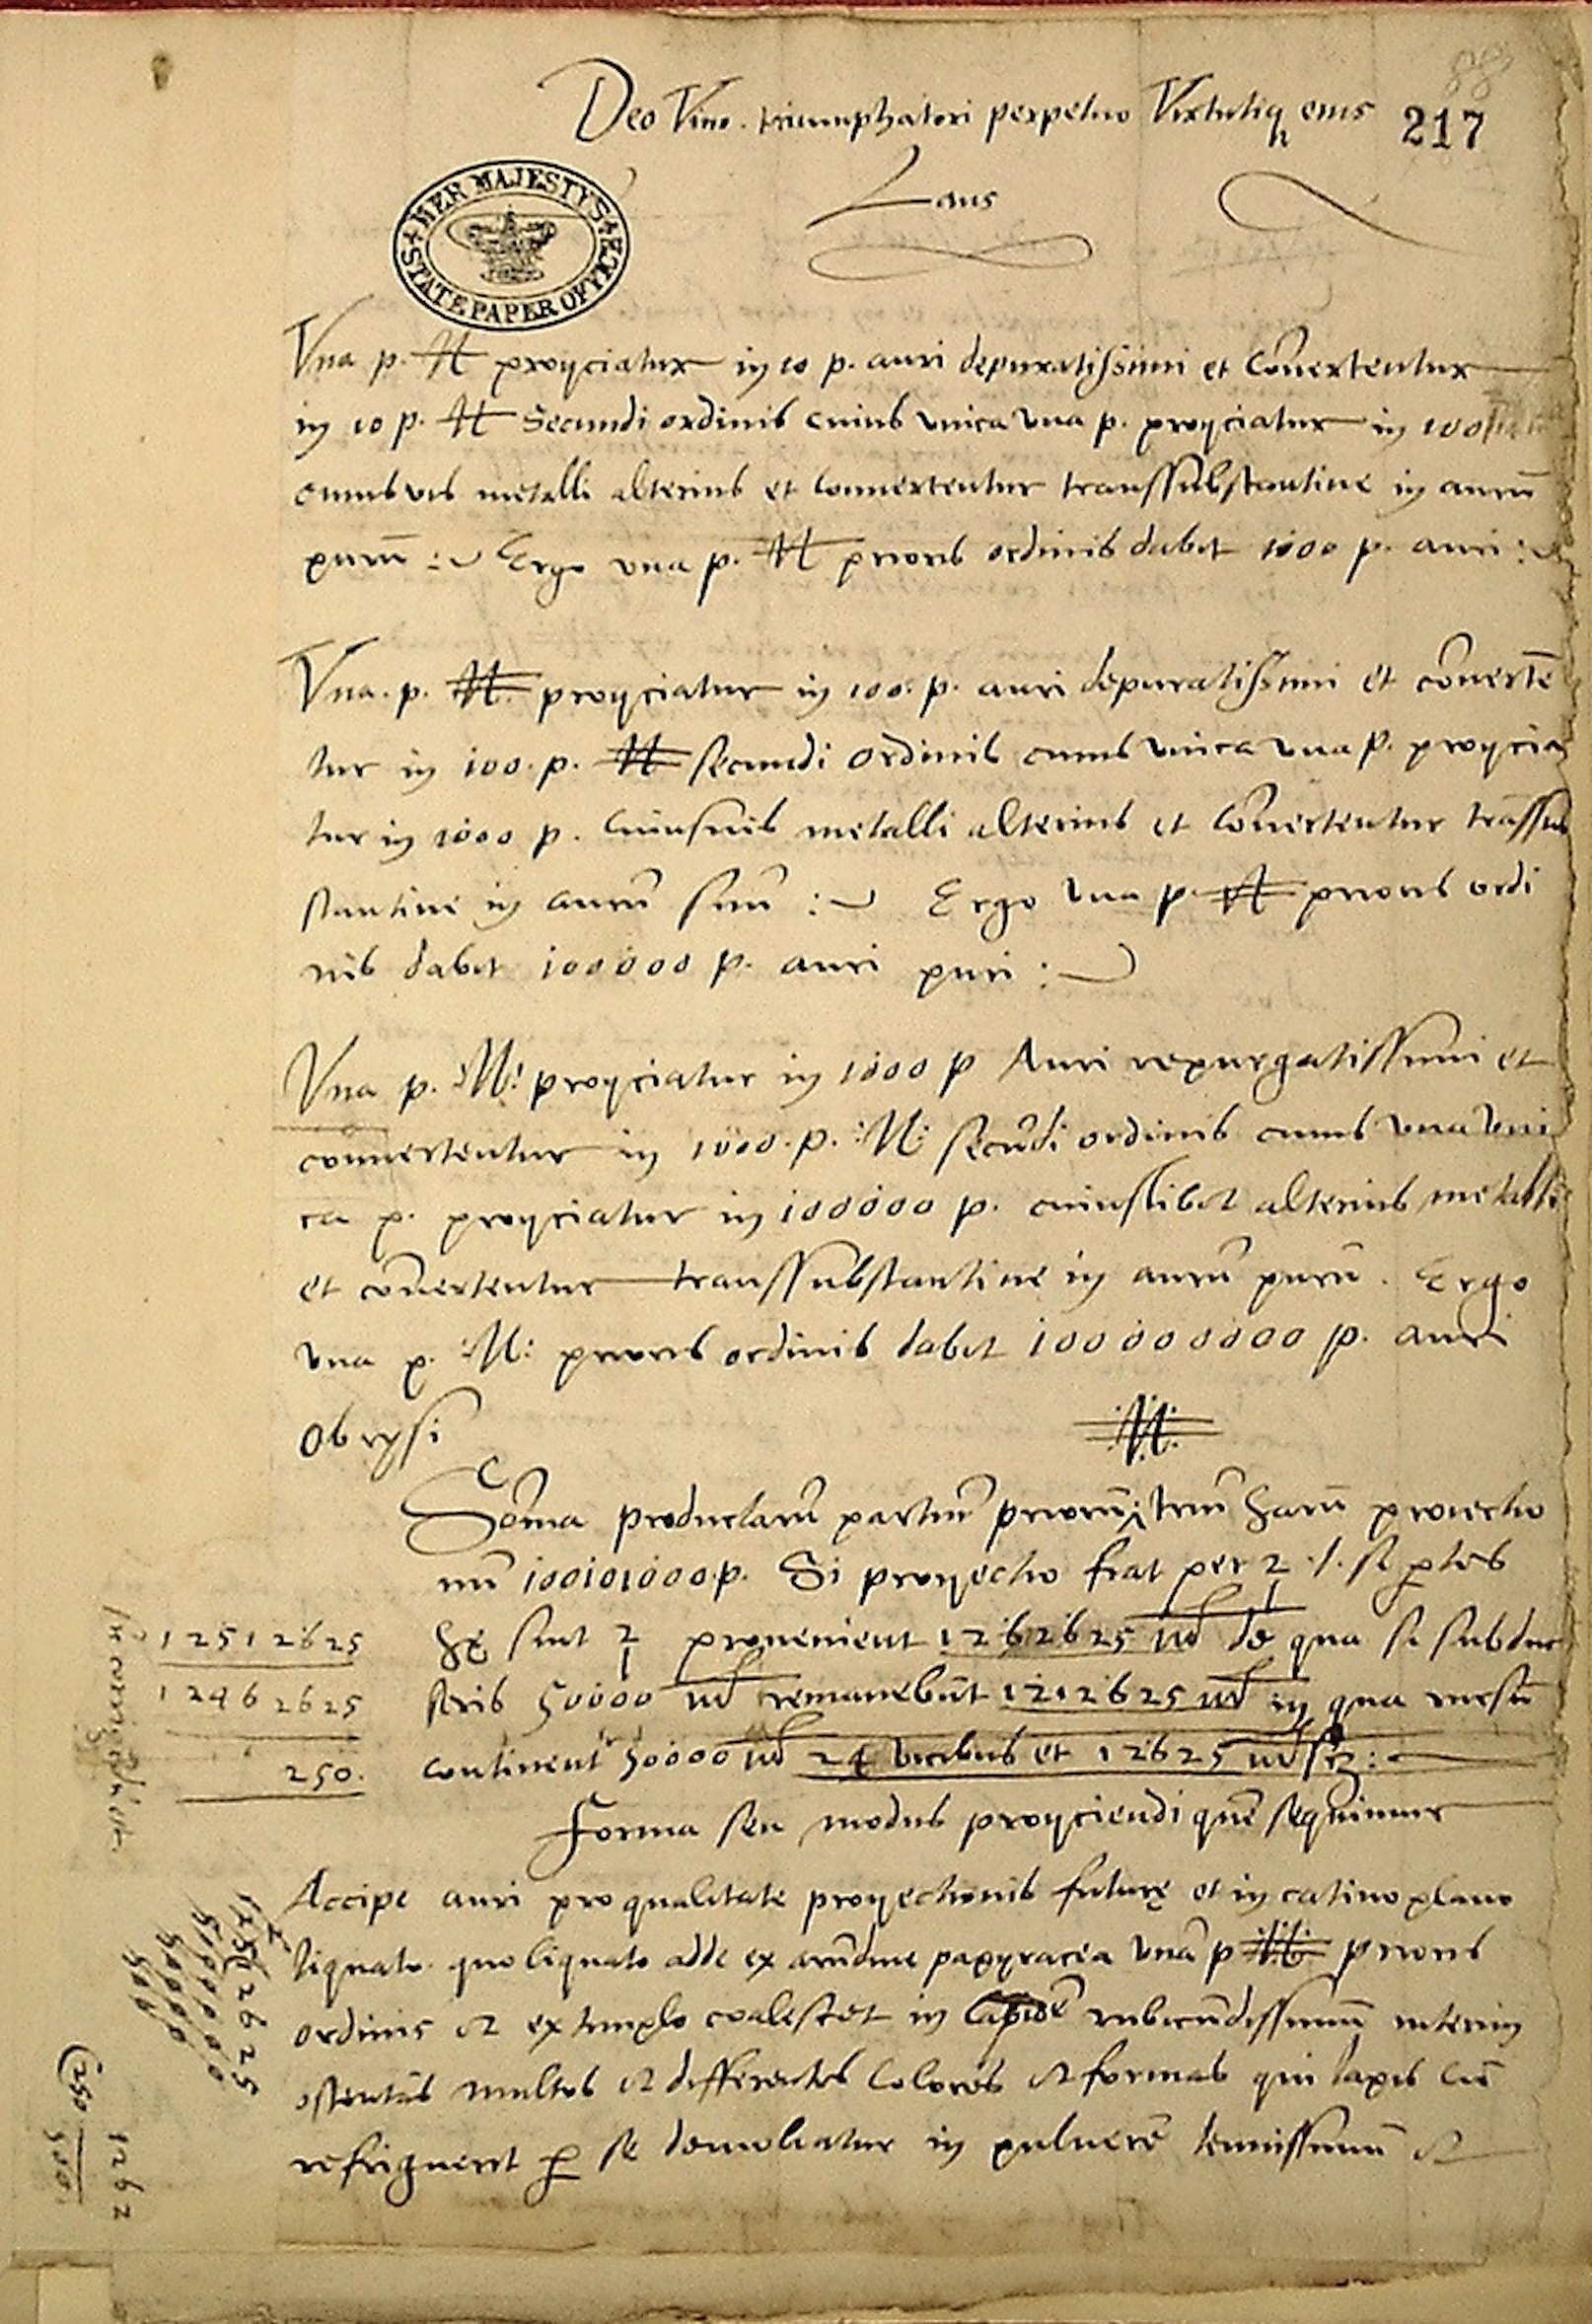 88
Deo Vivo. triumphatori perpetuo Virtutiq eius 217
Laus
HER MAJESTY'S STATE PAPER OFFICE
Vna p. proijciatur in 10 p. auri depuratissimi et Cōuertentur
in 10 p. Secundi ordinis cuius vnica vna p. proijciatur in 100
cuiusuis metalli alterius et conuertentur transsubstantiue in aurū
purū : Ergo vna p. prioris ordinis dabit 1000 p. auri :
Vna. p. proijciatur in 100. p. auri depuratissimi et cōuertē
tur in 100. p. secundi ordinis cuius vnica vna p. proijcia
tur in 1000 p. Cuiusuis metalli alterius et cōuertentur trāssub
stantiue in aurū : Ergo vna p. prioris ordi
nis dabit 100000 p. auri puri :
Vna p. M: proijciatur in 1000 p Auri repurgatissimi et
conuertentur in 1000. p. :M: secūdi ordinis cuius vna vni
ca p. proijciatur in 100000 p. cuiuslibet alterius metalli
et cōuertentur transsubstantiue in aurū purū. Ergo
vna p. :M: prioris ordinis dabit 100000000 p. auri
obrysi
Sōma productarū partiū priorū triū harū proiectio
nū 100101000.p. Si proijectio fiat per si ptes
hę sint provenient 1262625 de qua si subdux
seris 50000 remanebūt 1212625 in qua
continent 50000 24 vicibus et 12625
12512625
12462625
250.
Forma seu modus proijciendi quē sequimur
Accipe auri pro qualitate proijectionis futurę et in catino plano
liquato quo liquato adde ex arūdine papyracea vnā p prioris
ordinis et extemplo coalescet in lapidē rubicūdissimū interim
ostentās multos et differentes Colores et formas qui lapis cū
refriguerit p se demoliatur in puluerē tenuissimū et
12512625
5000000
50000
5000
1262
(250
5000